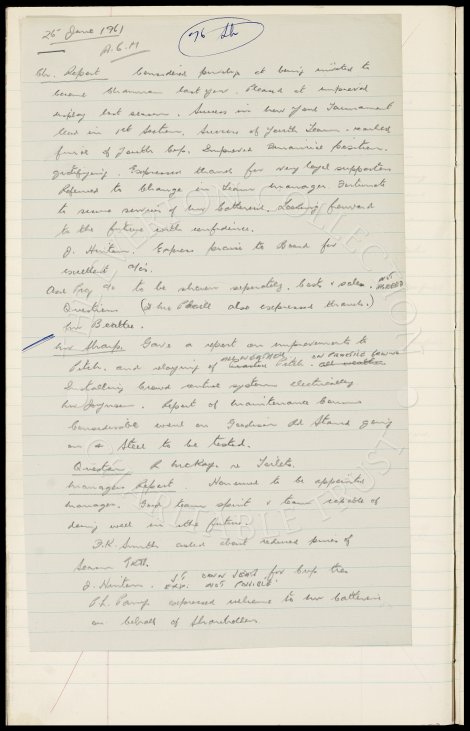 26 June 1961
A.G.M
76 th
Ch. Report Considered privilege at being invited to
become Chairman last year. Pleased at improved
display last season. Success in New York Tournament
in 1st Section. Success of Youth Team. reached
final of Youth Cup. Improved financial position.
gratifying. Expressed thanks for very loyal supporters
Referred to Change in team manager. Fortunate
to secure services of Mr Catterick. Looking forward
to the future with confidence.
J. Hinton. Express praise to Board for
excellent a/cs.
a/c to be shown separately. Costs & sales. NOT AGREED
Questions (also expressed thanks.)
Mr Beattie.
Mr Sharp. Gave a report on improvements to
Pitch. and relaying of ALL WEATHER Pitch ON PRACTICE GROUND
Installing Crowd control systems electrically
Mr Joynson. Report of maintenance
Considerable work on Goodison Rd Stand going
on & Steel to be tested.
Question R McKay. re Toilets.
Managers Report. Honoured to be appointed
manager. Good team spirit & team capable of
doing well in the future.
F.K. Smith asked about reduced prices of
Season Tkts.
J. Hinton. for Cup ties
EXP. NOT POSSIBLE.
expressed welcome to Mr Catterick
on behalf of Shareholders.
COLLECTION